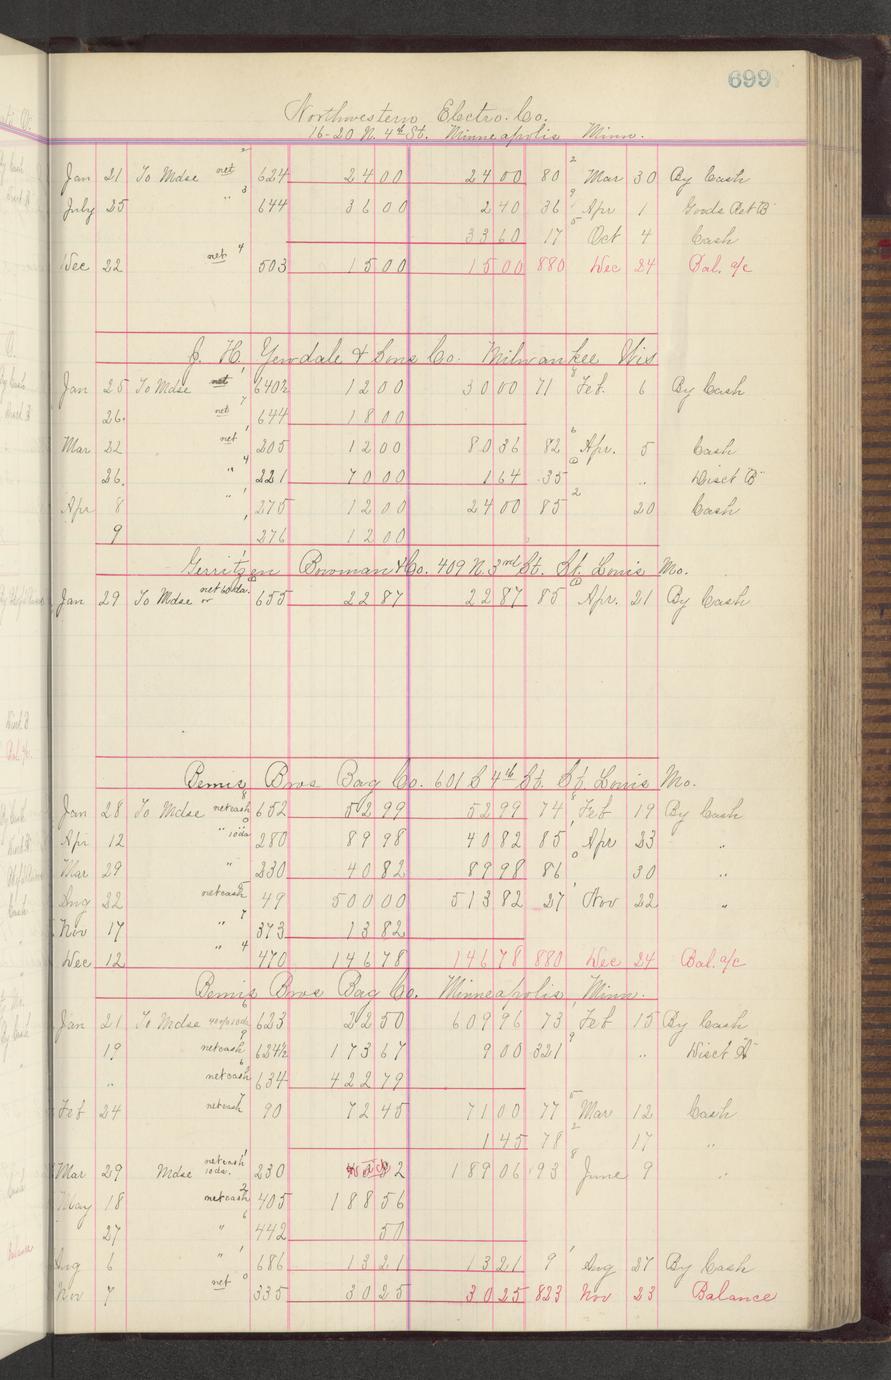 699
Northwestern Electro. Co.
16-20 N. 4th St. Minneapolis Minn.
2
Jan 21 To Mdse net 624 24 00 24 00 80 2 Mar 30 By Cash
July 25 " 3 644 36 00 2 40 36 9 Apr 1 Goods Ret B
33 60 17 5 Oct 4 Cash
Dec 22 net 4 503 15 00 15 00 880 Dec 24 Bal. a/c
J. H. Yewdale & Sons Co. Milwaukee Wis
Jan 25 To Mdse net 1 640½ 12 00 30 00 71 8 Feb. 6 By Cash
26. net 7 644 18 00
Mar 22 net 1 205 12 00 80 36 82 6 Apr. 5 Cash
26. " 4 221 70 00 1 64 35 " Disct B
Apr 8 " 1 275 12 00 24 00 85 2 20 Cash
9 1 276 12 00
Gerritzen Bowman & Co. 409 N. 3rd St. St. Louis Mo.
Jan 29 To Mdse net 60 da. or 655 22 87 22 87 85 Apr. 21 By Cash
Bemis Bros Bag Co. 601 S 4th St. St. Louis Mo.
Jan 28 To Mdse net cash 8 652 52 99 52 99 74 8 Feb 19 By Cash
Apr 12 " 10 da 0 280 89 98 40 82 85 1 Apr 23 "
Mar 29 " 230 40 82 89 98 86 0 30 "
Aug 22 net cash 5 49 500 00 513 82 27 1 Nov 22 "
Nov 17 " 7 373 13 82
Dec 12 " 4 470 146 78 146 78 880 Dec 24 Bal. a/c
Bemis Bros Bag Co. Minneapolis, Minn.
Jan 21 To Mdse 10 da 6 623 22 50 609 96 73 1 Feb 15 By Cash
19 net cash 9 624½ 173 67 9 00 321 9 " Disct A
" net cash 6 634 422 79
Feb 24 net cash 7 90 72 45 71 00 77 5 Mar 12 Cash
1 45 78 2 17 "
Mar 29 Mdse net cash 10 da. 1 230 189 06 93 8 June 9 "
May 18 net cash 2 405 188 56
27 " 6 442 50
Aug 6 " 1 686 13 21 13 21 9 1 Aug 27 By Cash
Nov 7 net 0 335 30 25 30 25 823 Nov 23 Balance